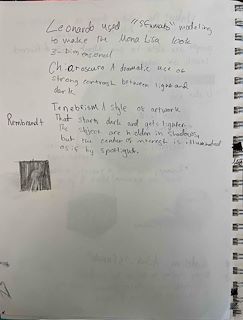 Leonardo used "Sfumato" modeling
to make the Mona Lisa look
3-Dimensional
Chiaroscuro A dramatic use of
strong contrast between light and
dark
Tenebrism A style of artwork
Rembrandt That starts dark and gets lighter.
The object are hidden in shadows,
but the center of interest is illuminated
as if by spotlight.